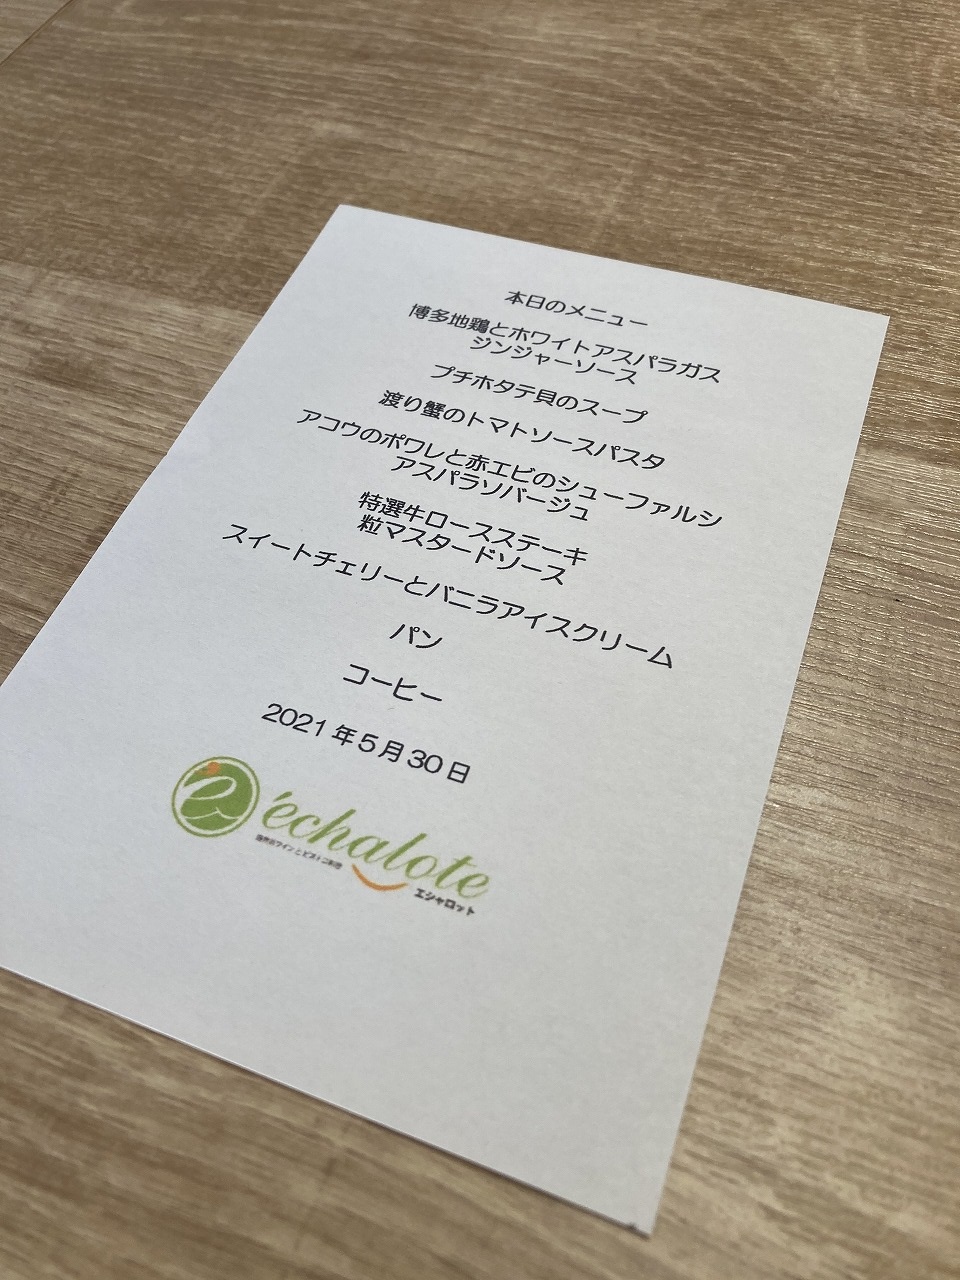 本日のメニュー
博多地鶏とホワイトアスパラガス
ジンジャーソース
プチホタテ貝のスープ
渡り蟹のトマトソースパスタ
アコウのポワレと赤エビのシューファルシ
アスパラソバージュ
特選牛ロースステーキ
粒マスタードソース
スイートチェリーとバニラアイスクリーム
パン
コーヒー
2021年5月30日
é
échalote
エシャロット